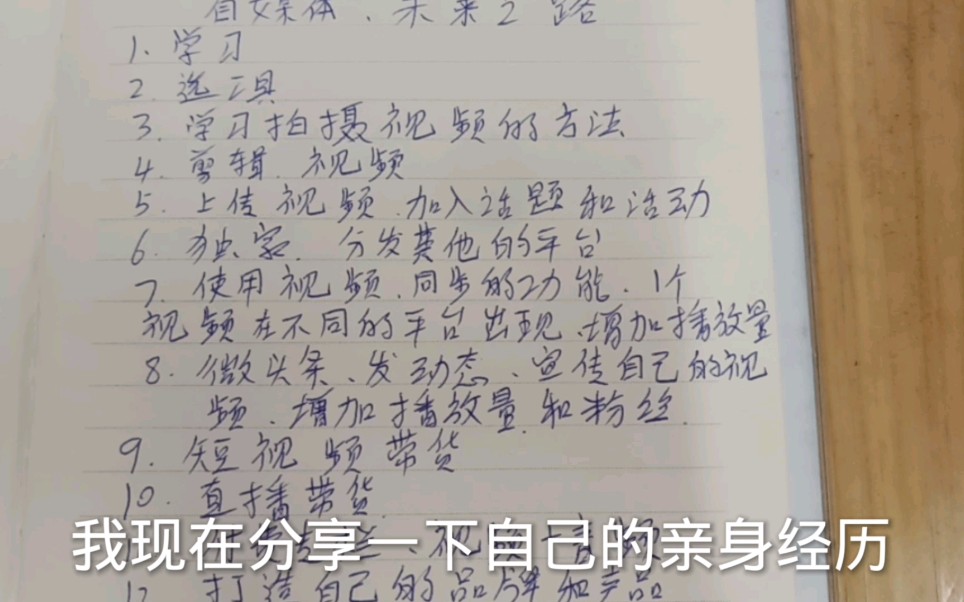 自媒体、未来之路
1. 学习
2. 选工具
3. 学习拍摄视频的方法
4. 剪辑.视频
5. 上传视频.加入话题和活动
6. 独家. 分发其他的平台
7. 使用视频.同步的功能.1个
视频在不同的平台出现、增加播放量
8. 微头条、发动态、宣传自己的视
频、增加播放量.和粉丝.
9. 短视频带货
10. 直播带货
我现在分享一下自己的亲身经历
12 打造自己的品牌和产品